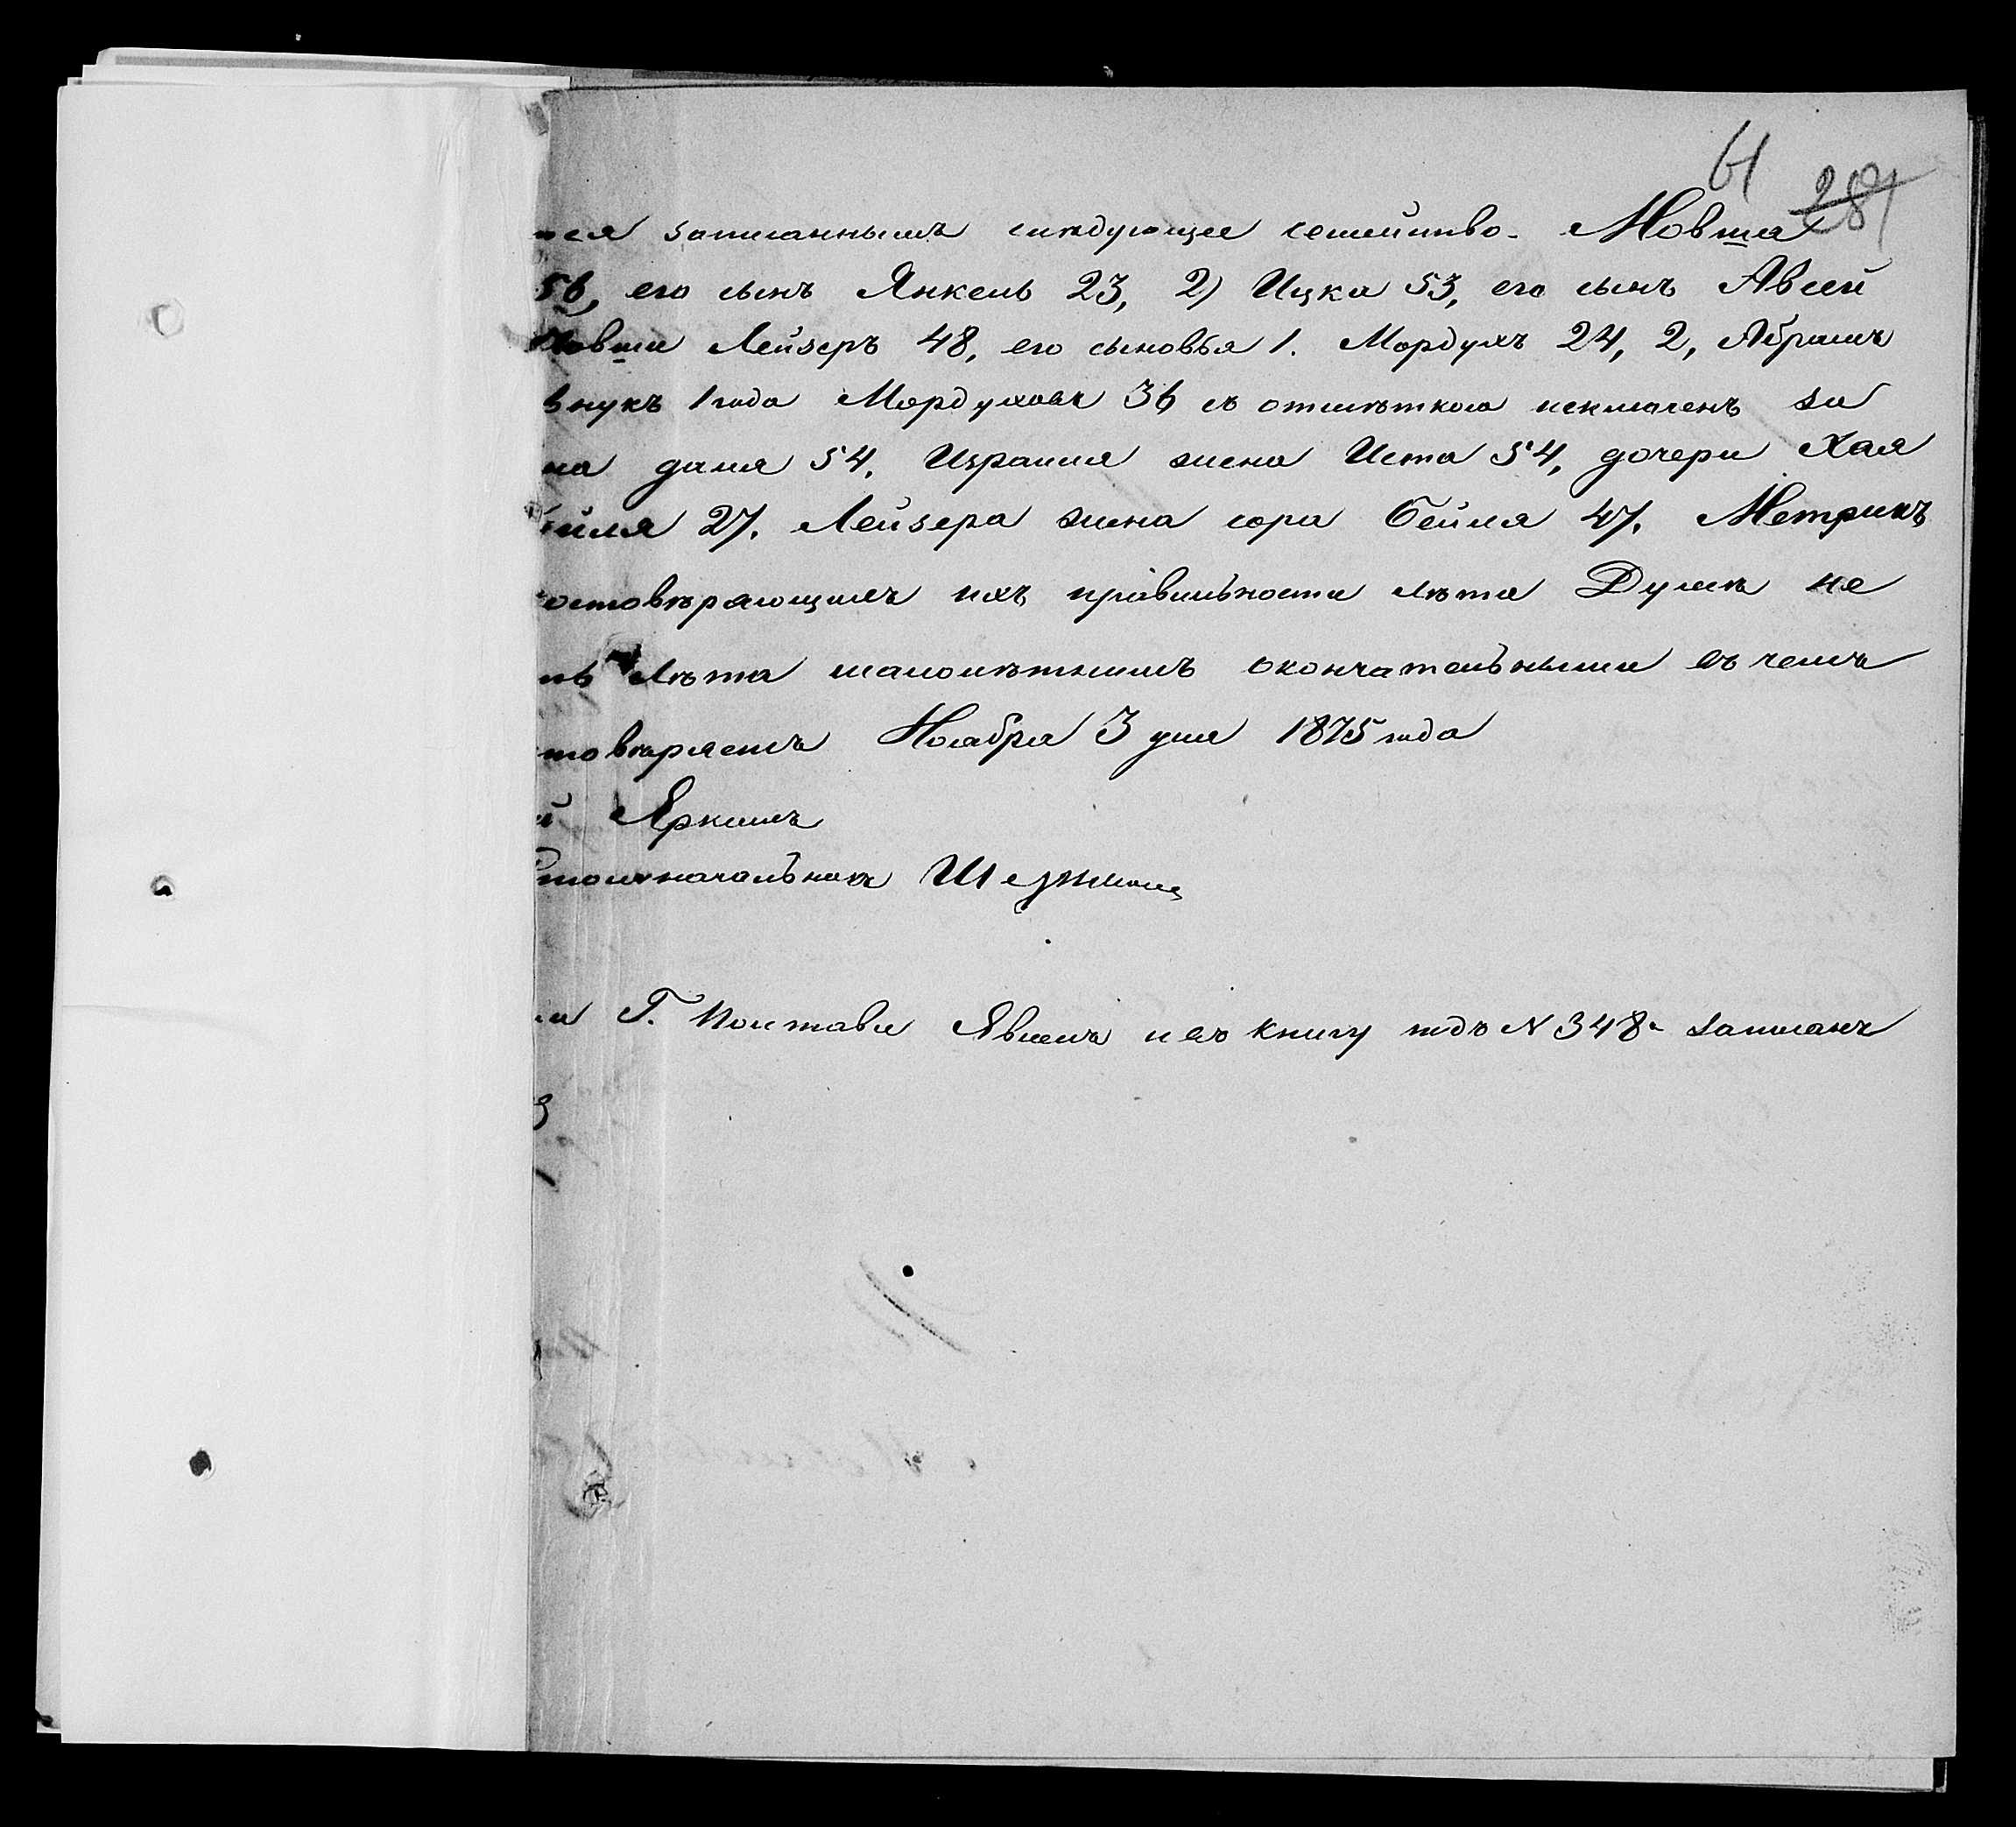 61 281
тся записаннымъ слѣдующее семейство. Мовша
56, его сынъ Янкель 23, 2) Ицка 53, его сынъ Авсей
Мовши Лейзеръ 48, его сыновья 1. Мордухъ 24, 2, Абрамъ
внукъ 1 года Мордуховъ 36 съ отмѣткою исключенъ за
на 54, Израиля жена Иста 54, дочери Хая
ейля 27. Лейзера жена сора Бейля 47. Метрикъ
остовѣряющихъ ихъ правильности лѣта Думѣ не
лѣта малолѣтнимъ окончательными въ чемъ
товѣряетъ Ноября 3 дня 1875 года
й Яркинъ
Столоначальникъ
и Г. Полтавы Явленъ и въ книгу подъ N 348. записанъ